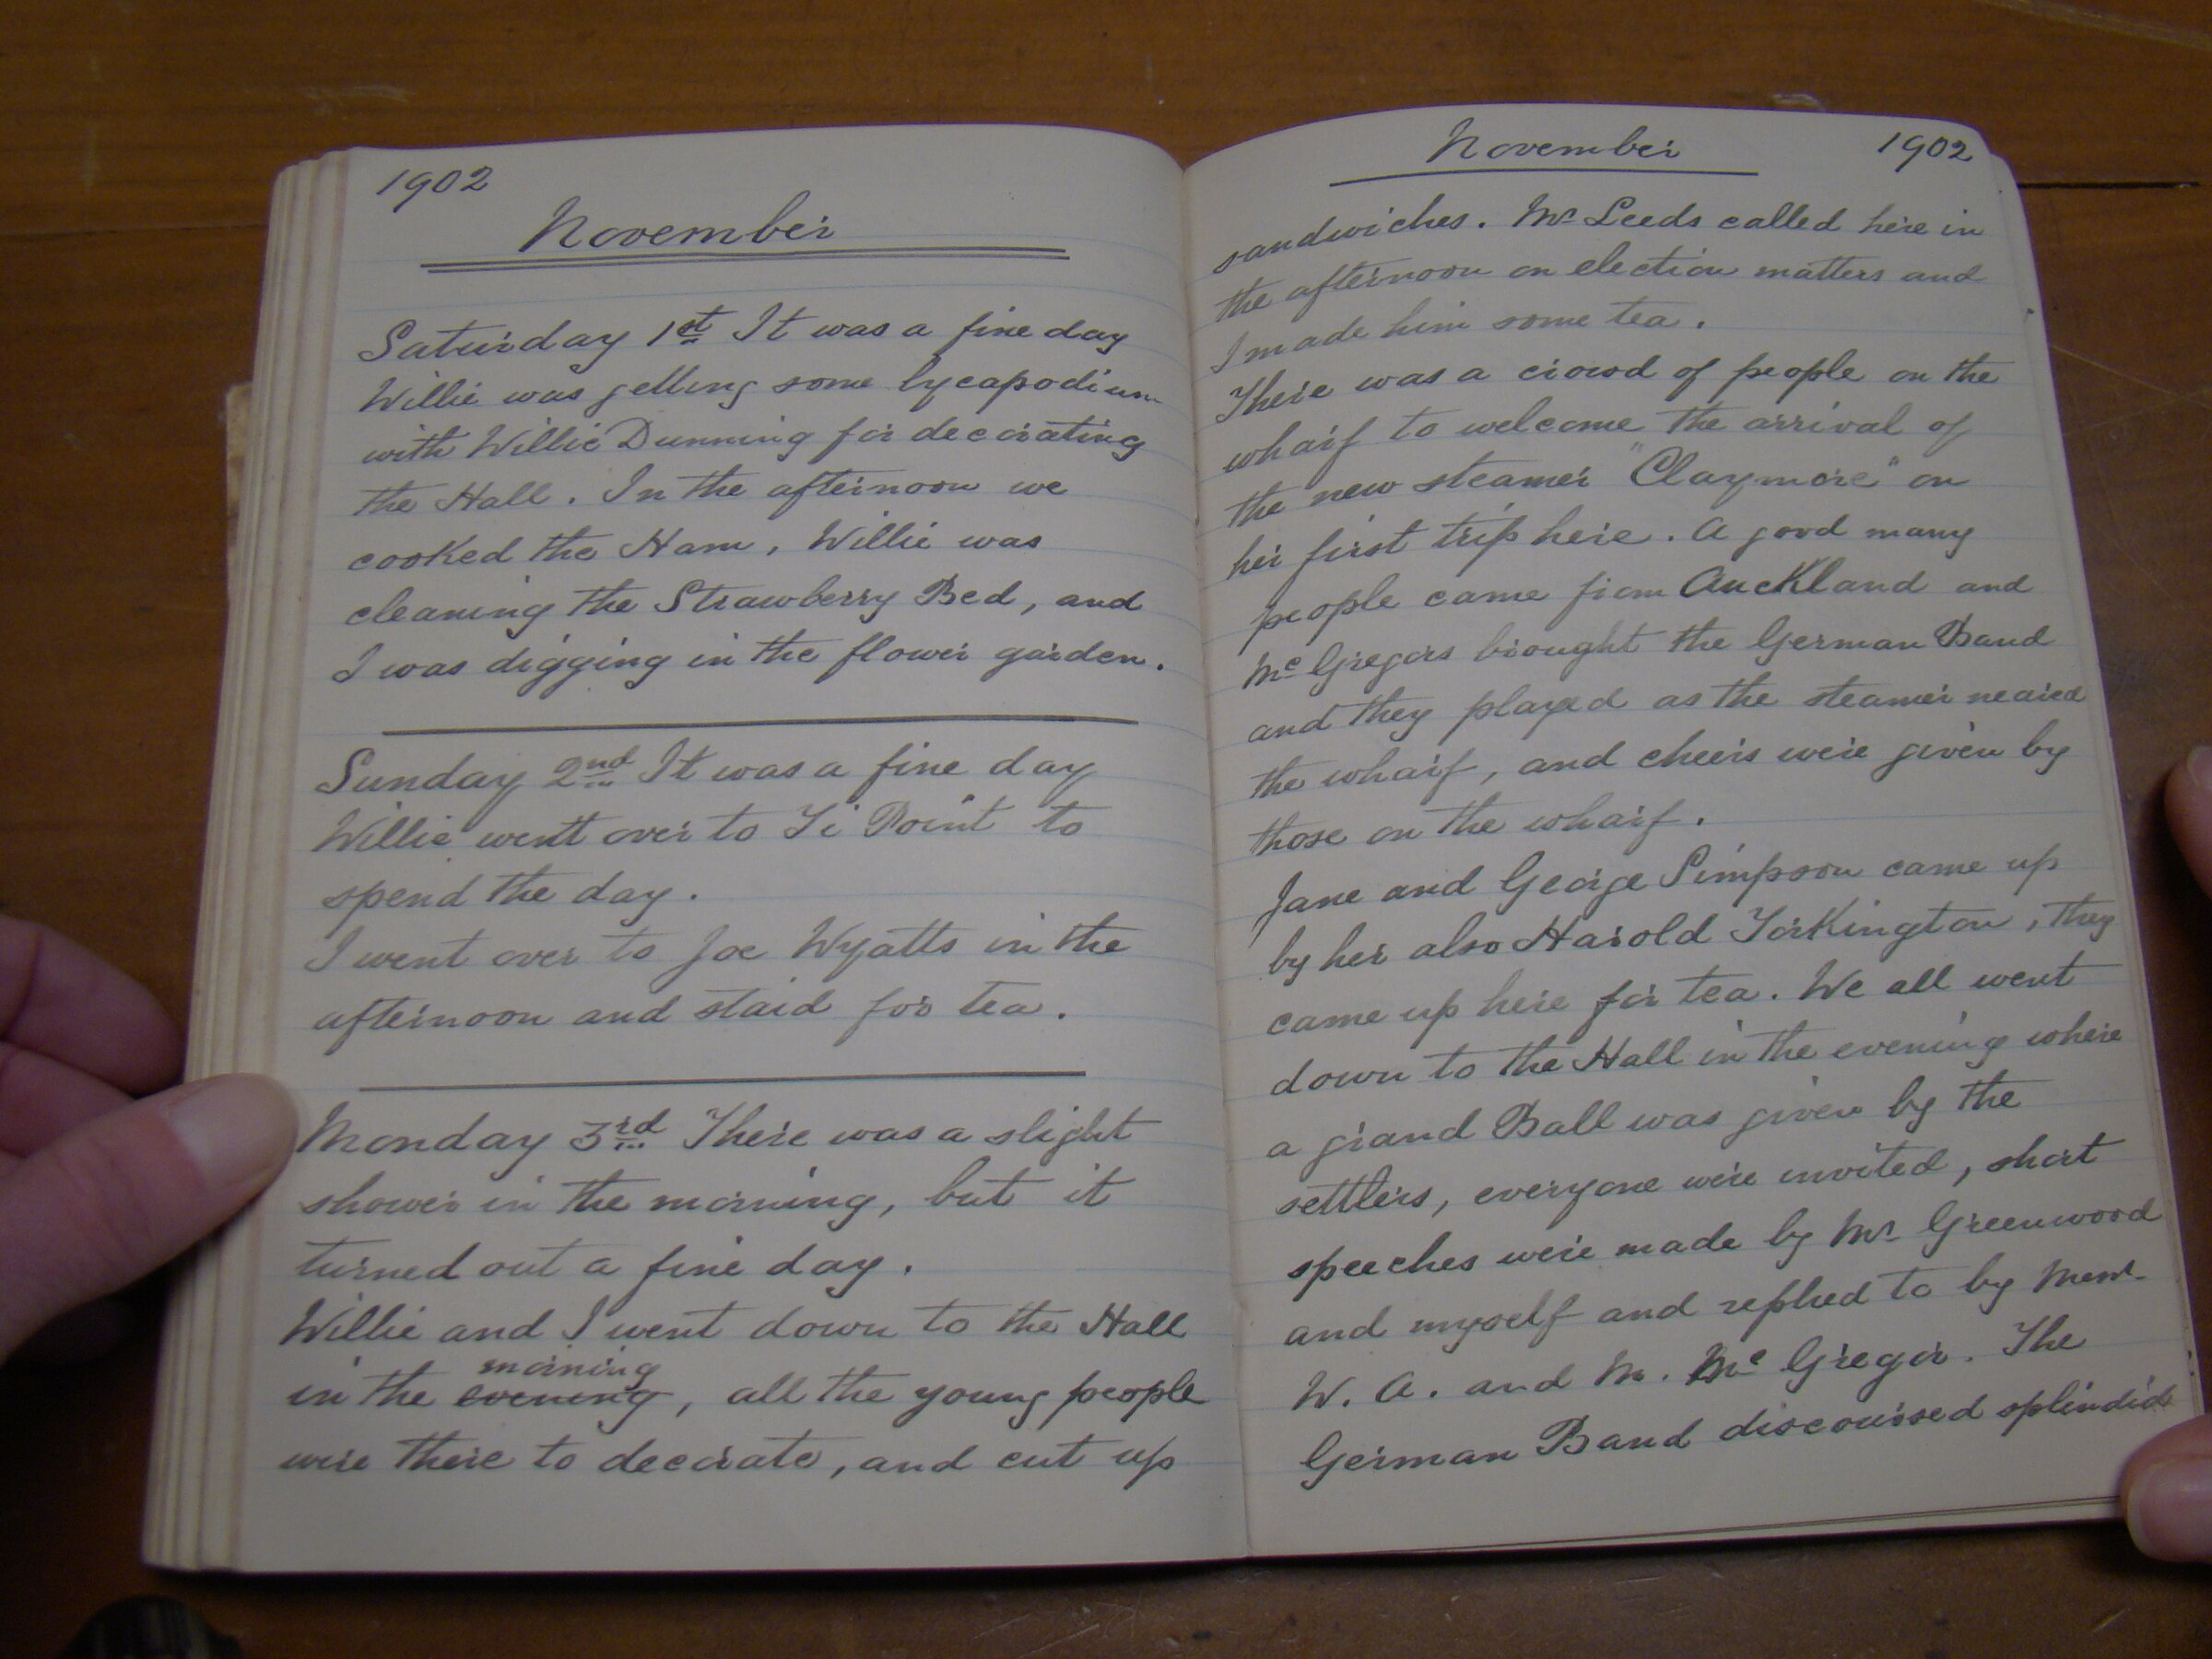 1902
November
Saturday 1st It was a fine day
Willie was getting some lycapodium
with Willie Dunning for decorating
the Hall. In the afternoon we
cooked the Ham, Willie was
cleaning the Strawberry Bed, and
I was digging in the flower garden.
Sunday 2nd It was a fine day
Willie went over to Ti Point to
spend the day.
I went over to Joe Wyatts in the
afternoon and staid for tea.
Monday 3rd There was a slight
shower in the morning, but it
turned out a fine day.
Willie and I went down to the Hall
morning
in the evening, all the young people
were there to decorate, and cut up
November 1902
sandwiches. Mr Leeds called here in
the afternoon on election matters and
I made him some tea.
There was a crowd of people on the
wharf to welcome the arrival of
the new steamer "Claymore" on
her first trip here. A good many
people came from Auckland and
McGregors brought the German Band
and they played as the steamer neared
the wharf, and cheers were given by
those on the wharf.
Jane and George Simpson came up
by her also Harold Torkington, they
came up here for tea. We all went
down to the Hall in the evening where
a grand Ball was given by the
settlers, everyone were invited, short
speeches were made by Mr Greenwood
and myself and replied to by
W. A. and M. McGregor. The
German Band discoursed splendid